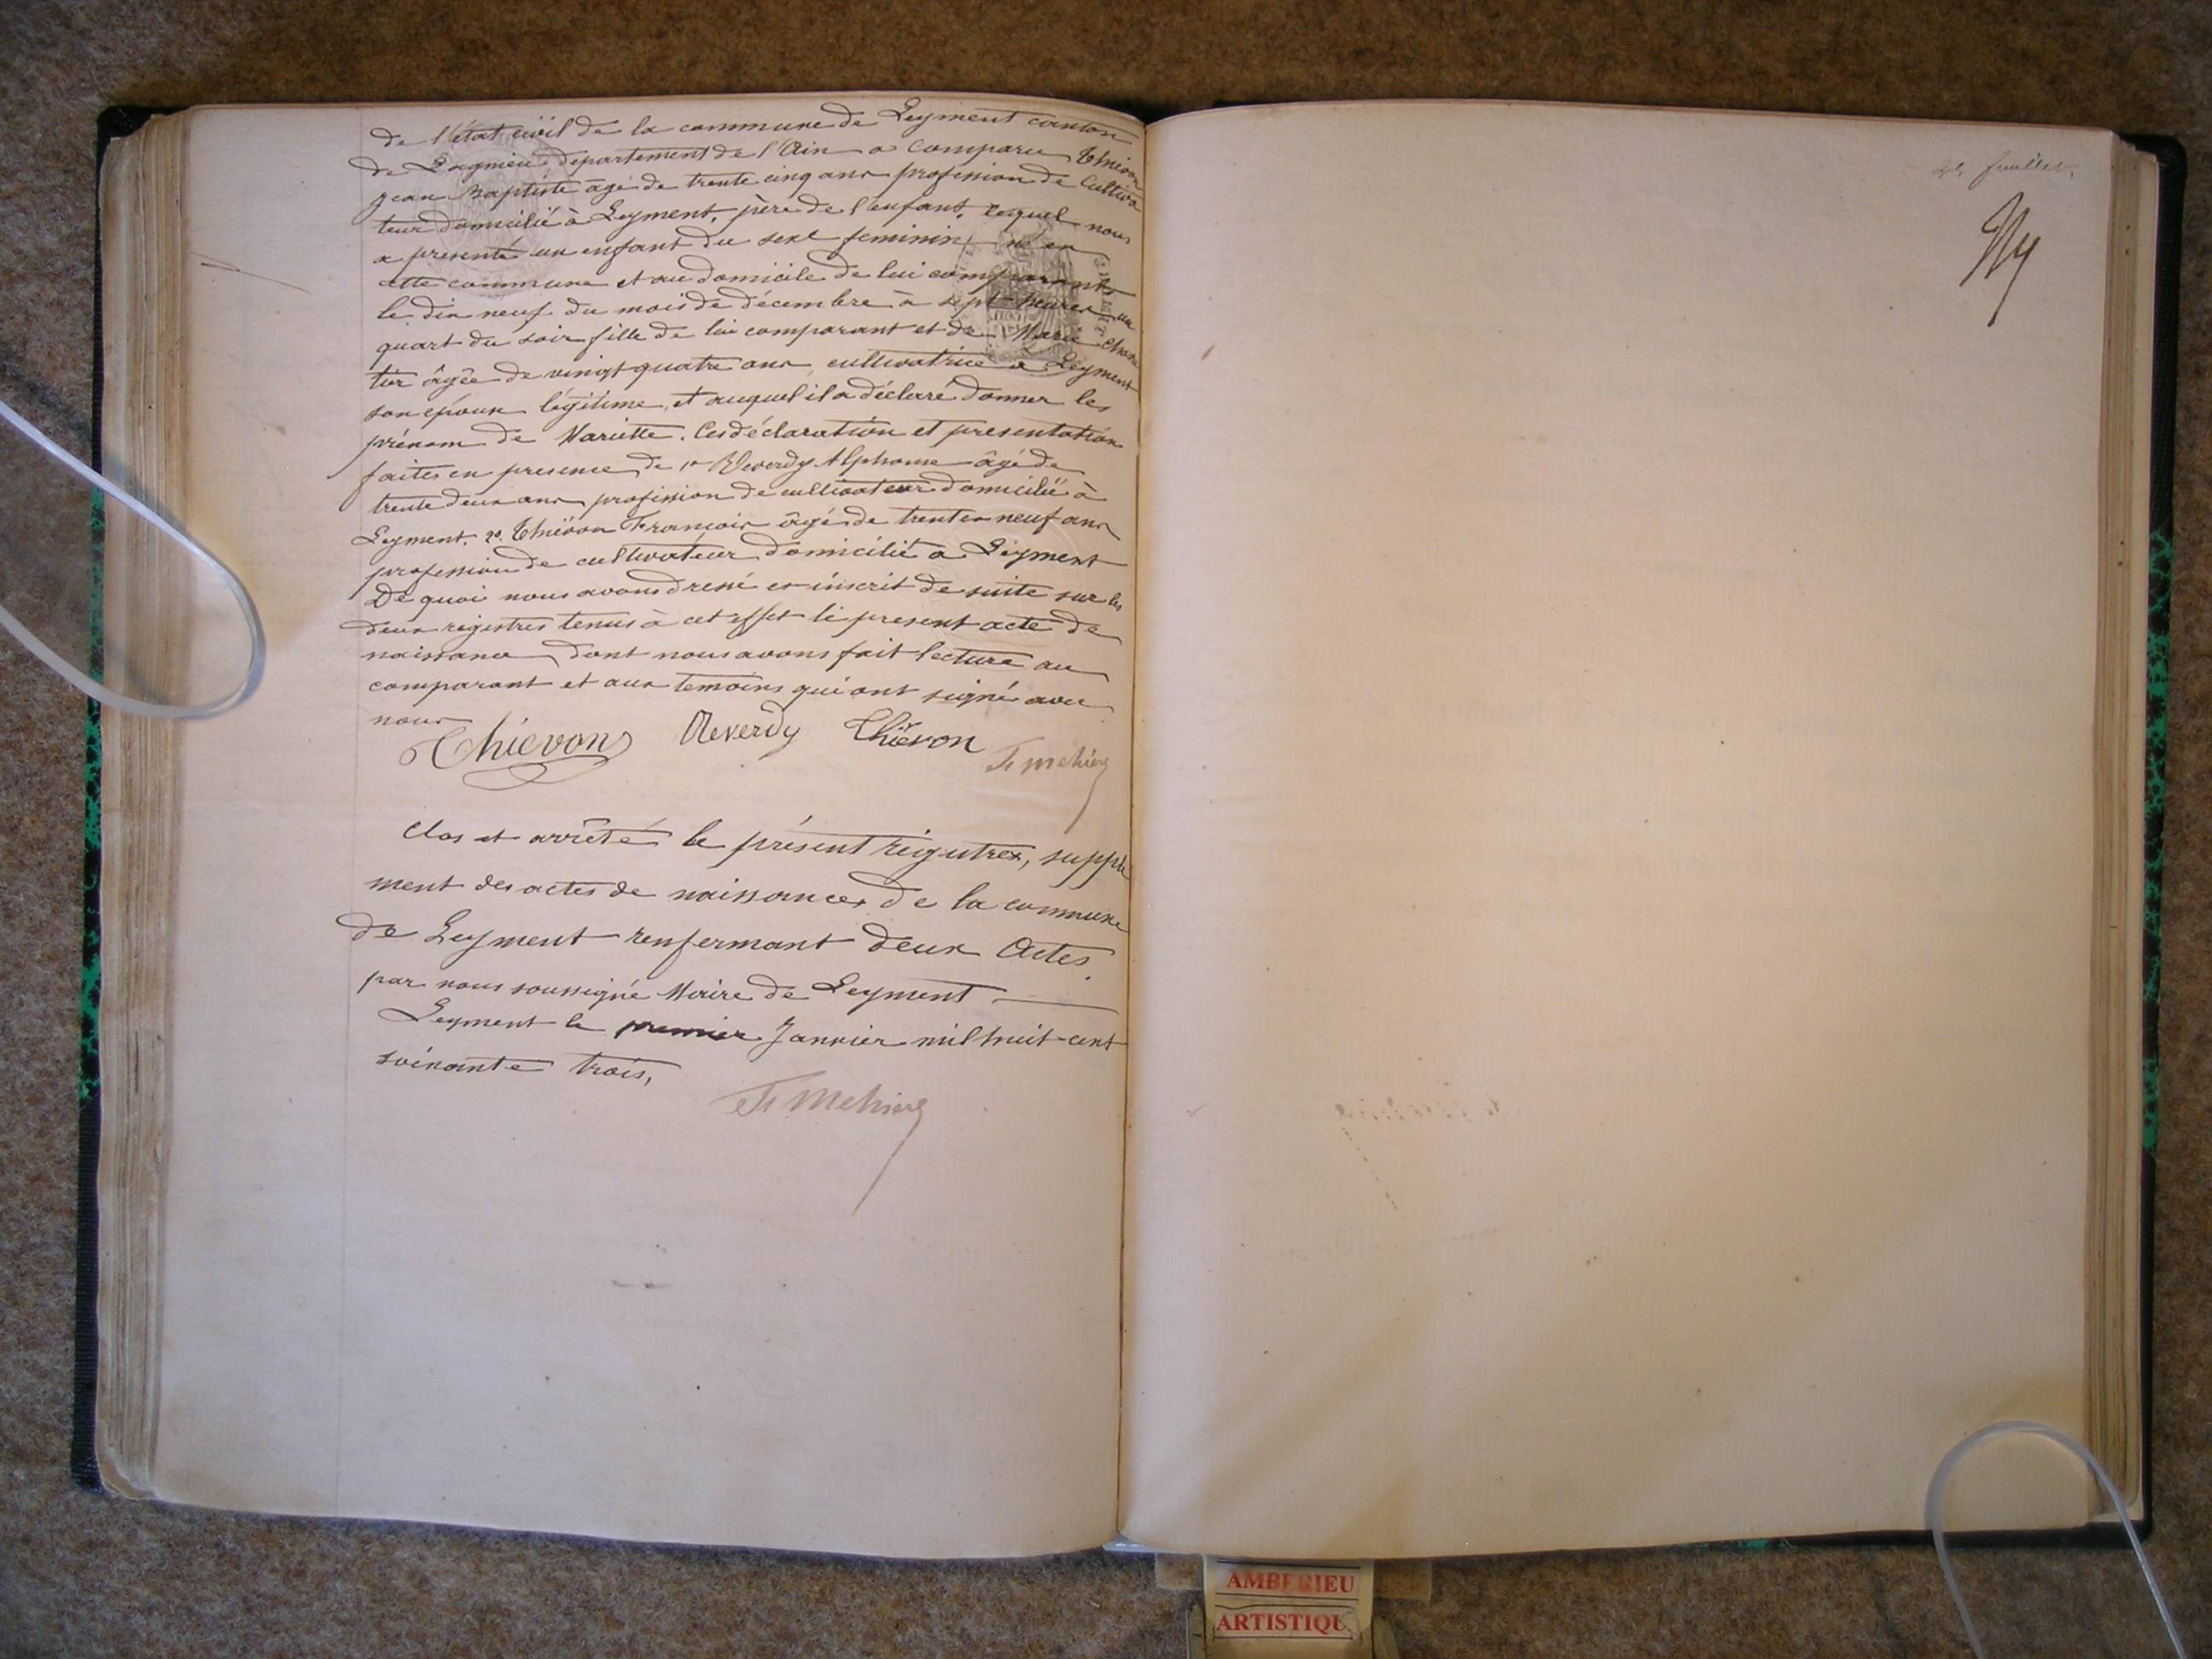 de l'état civil de la commune de Leyment canton
de Lagnieu departement de l'Ain a comparu Thiévon
Jean Baptiste âgé de trente cinq ans profession de Cultiva
teur domicilié à Leyment, père de l'enfant, lequel nous
a presenté un enfant du sexe feminin né en
cette commune et au domicile de lui comparant
le dix neuf du mois de décembre à sept heures un
quart du soir fille de lui comparant et de Marie
tier âgée de vingt quatre ans, cultivatrice a Leyment
son epouse légitime, et auquel il a déclaré donner les
prénom de Mariette. Ces déclaration et presentation
faites en presence de 1° Reverdy Alphonse âgé de
trente deux ans profession de cultivateur domicilié à
Leyment. 2° Thiévon François âgé de trente neuf ans
profession de cultivateur domicilié a Leyment
De quoi nous avons dressé et inscrit de suite sur les
deux registres tenus à cet effet le present acte de
naissance dont nous avons fait lecture au
comparant et aux temoins qui ont signé avec
nous
Thiévon Reverdy Thiévon
Clos et arrêté le présent régistre, supplé
ment des actes de naissances de la commune
de Leyment renfermant deux Actes.
par nous soussigné Maire de Leyment
Leyment le premier Janvier mil huit-cent
soixante trois,
feuillet
AMBERIEU
ARTISTIQU